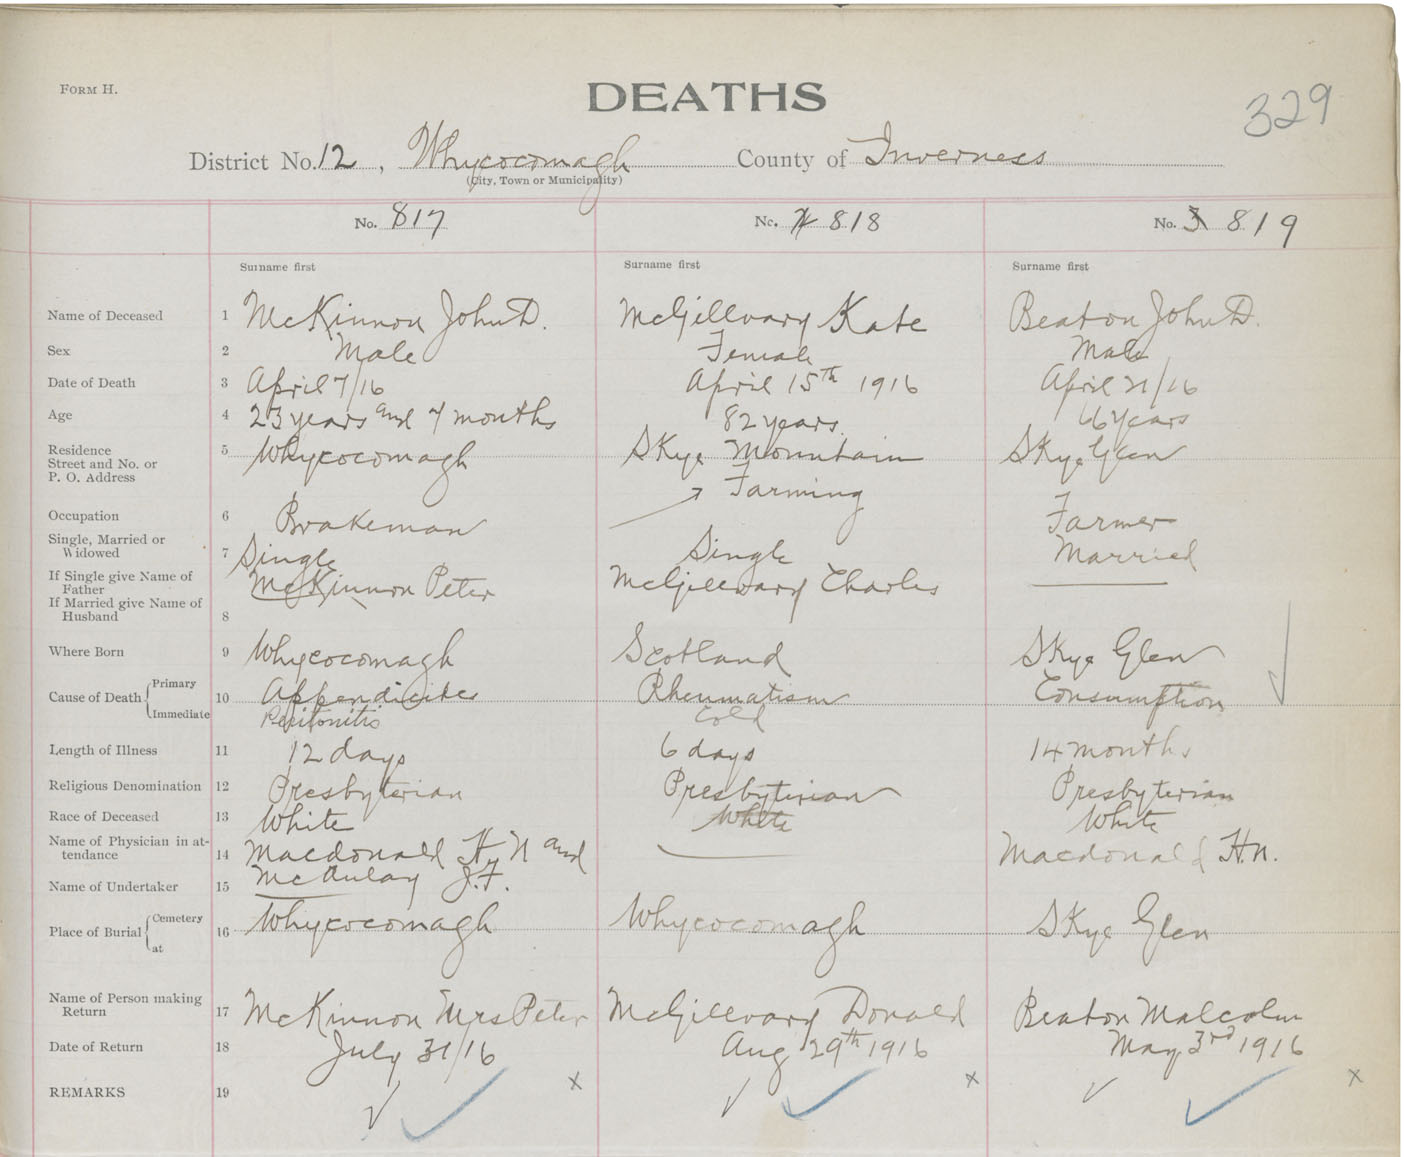 FORM H.
DEATHS
329
District No. 12, Whycocomagh County of Inverness
(City, Town or Municipality)
No. 817 No. 818 No. 3 819
Surname first Surname first Surname first
Name of Deceased 1 McKinnon John D. McGillvary Kate Beaton John D.
Sex 2 Male Female Male
Date of Death 3 April 7/16 April 15th 1916 April 21/16
Age 4 23 years and 7 months 82 years. 66 years
Residence
Street and No. or 5 Whycocomagh Skye Mountain Skye Glen
P. O. Address
Farming
Occupation 6 Brakeman Farmer
Single, Married or
Widowed 7 Single Single Married
If Single give Name of
Father McKinnon Peter McGillvary Charles
If Married give Name of
Husband 8
Where Born 9 Whycocomagh Scotland Skye Glen
Cause of Death Primary 10 Appendicites Rheumatism Consumption
Immediate Peritonitis Cold
Length of Illness 11 12 days 6 days 14 months
Religious Denomination 12 Presbyterian Presbyterian Presbyterian
Race of Deceased 13 White White White
Name of Physician in at-
tendance 14 Macdonald H. N and Macdonald H.N.
McAulay J.F.
Name of Undertaker 15
Place of Burial Cemetery 16 Whycocomagh Whycocomagh Skye Glen
at
Name of Person making
Return 17 McKinnon Mrs Peter McGillvary Donald Beaton Malcolm
Date of Return 18 July 31/16 Aug 29th 1916 May 3rd 1916
REMARKS 19 x x x